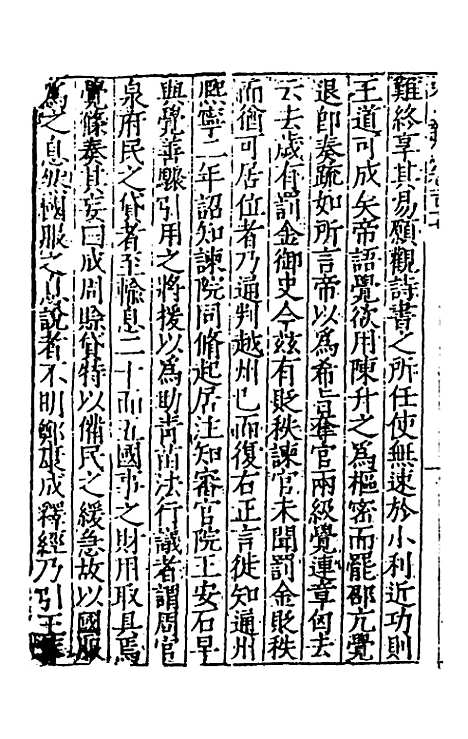 難終享其易願觀詩書之所任使無速於小利近功則
王道可成矣帝語覺欲用陳升之爲樞密而罷邵亢覺
退卽奏疏如所言帝以爲希旨奪官兩級覺連章丐去
云去歲有罰金御史今玆有貶秩諫官未聞罰金貶秩
而猶可居位者乃通判越州已而復右正言徙知通州
熙寧二年詔知諫院同脩起居注知審官院王安石早
與覺善驟引用之將援以爲助靑苗法行議者謂周官
泉府民之貸者至輸息二十而五國事之財用取具焉
覺條奏其妄曰成周賖貸特以備民之緩急故以國服
爲之息然國服之息說者不明鄭康成釋經乃引王莽